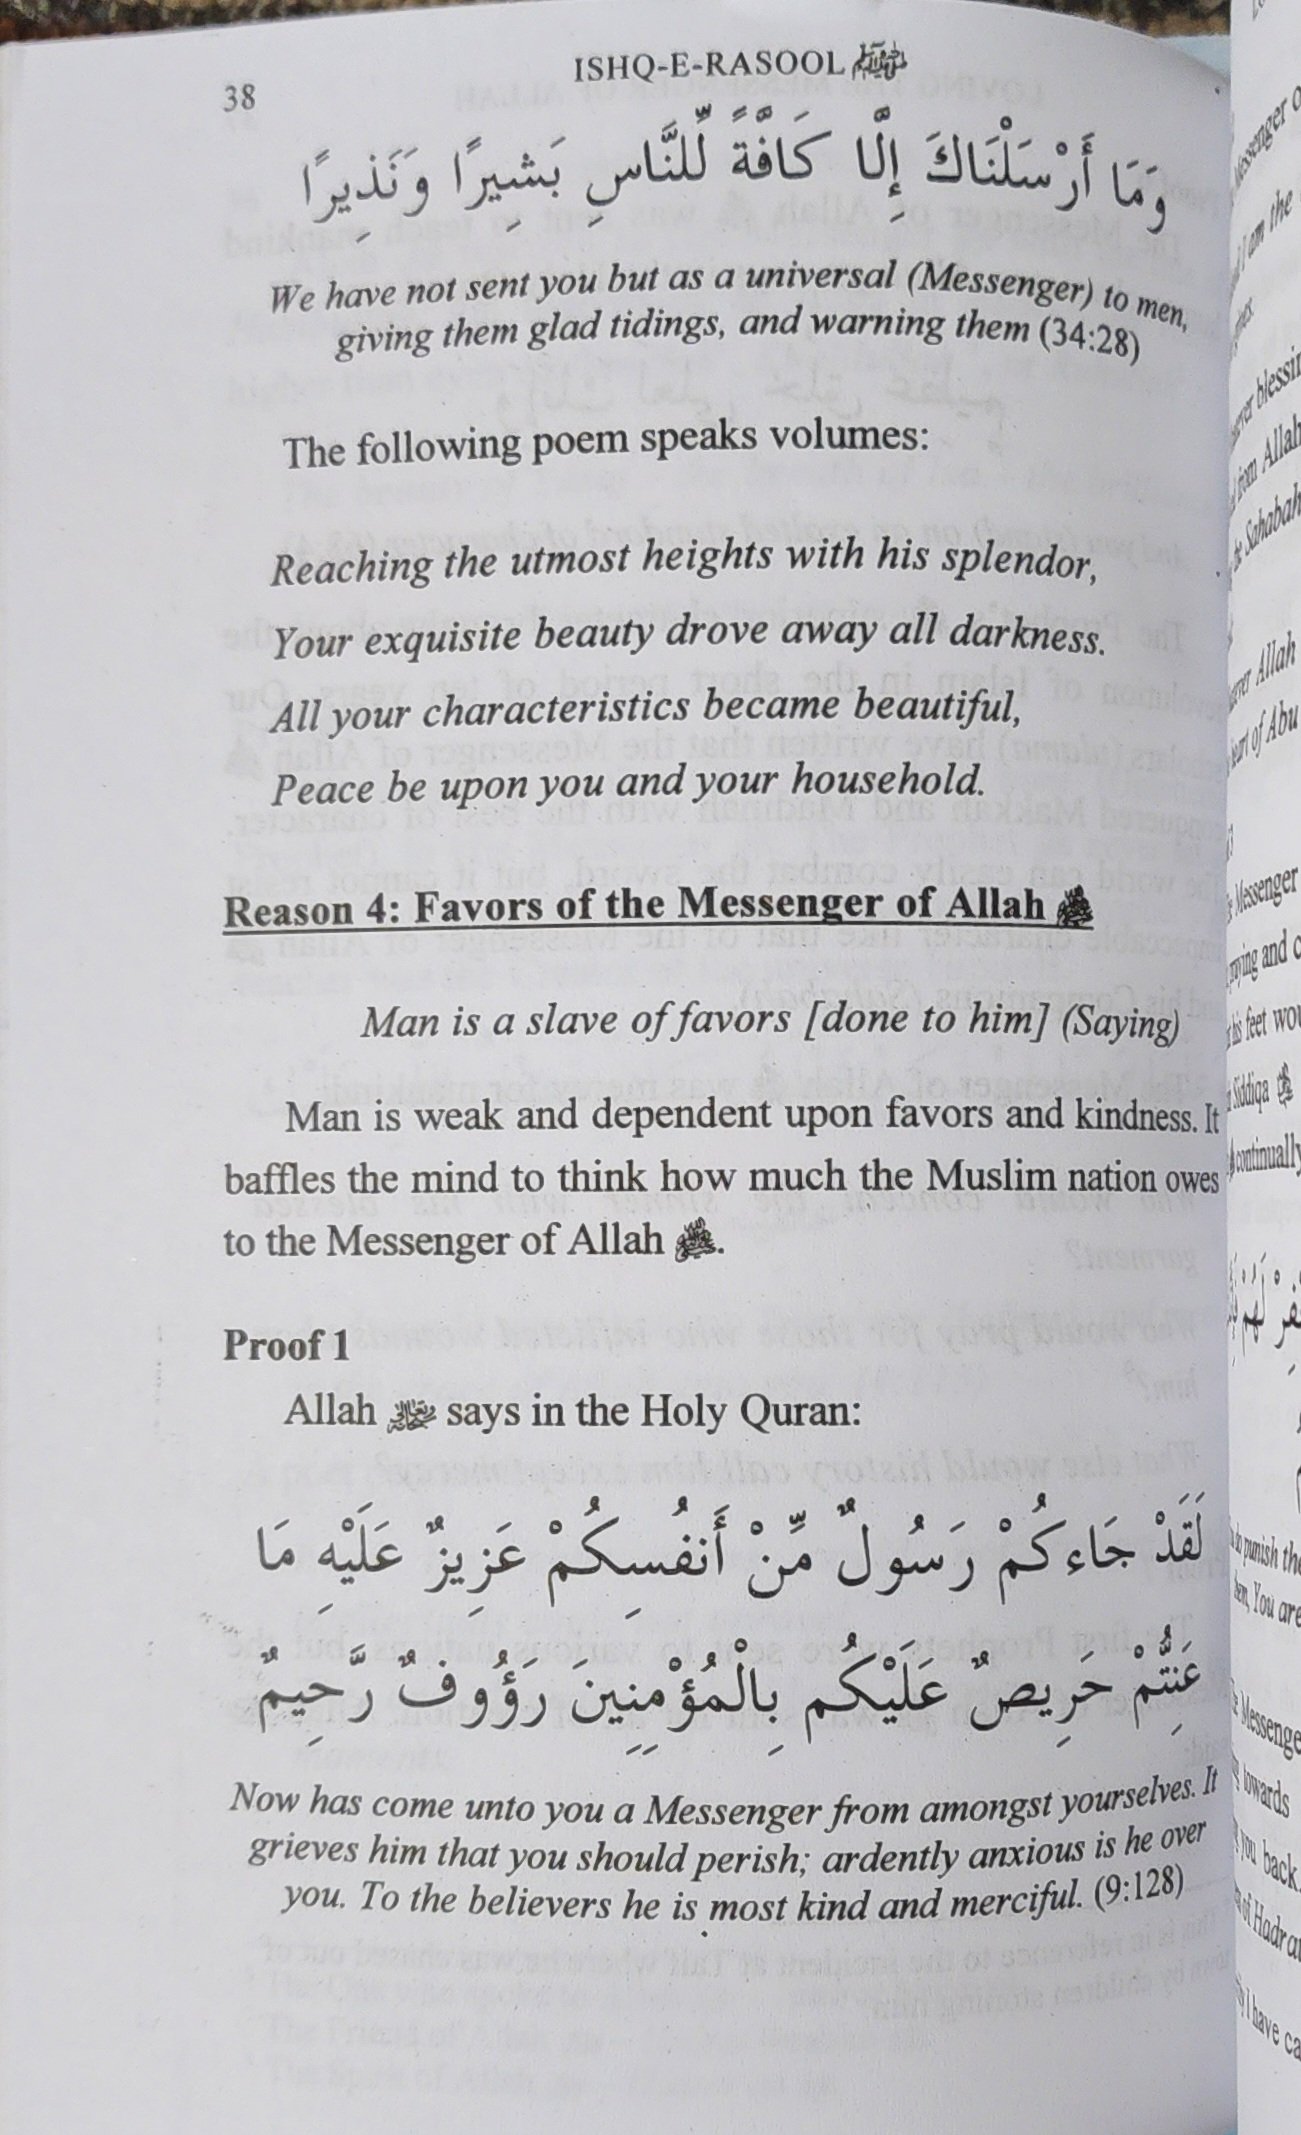 38
ISHQ-E-RASOOL ﷺ
وَمَا أَرْسَلْنَاكَ إِلَّا كَافَّةً لِّلنَّاسِ بَشِيرًا وَنَذِيرًا
We have not sent you but as a universal (Messenger) to men,
giving them glad tidings, and warning them (34:28)
The following poem speaks volumes:
Reaching the utmost heights with his splendor,
Your exquisite beauty drove away all darkness.
All your characteristics became beautiful,
Peace be upon you and your household.
Reason 4: Favors of the Messenger of Allah ﷺ
Man is a slave of favors [done to him] (Saying)
Man is weak and dependent upon favors and kindness. It
baffles the mind to think how much the Muslim nation owes
to the Messenger of Allah ﷺ.
Proof 1
Allah says in the Holy Quran:
لَقَدْ جَاءكُمْ رَسُولٌ مِّنْ أَنفُسِكُمْ عَزِيزٌ عَلَيْهِ مَا
عَنِتُّمْ حَرِيصٌ عَلَيْكُم بِالْمُؤْمِنِينَ رَؤُوفٌ رَّحِيمٌ
Now has come unto you a Messenger from amongst yourselves. It
grieves him that you should perish; ardently anxious is he over
you. To the believers he is most kind and merciful. (9:128)
Messenger
I am the
blessin
from Allah
Sahabah
Allah
of Abu
Messenger
praying and
his feet wou
Siddiqa
continually
لَهُمْ
punish the
them, You are
Messenge
towards
you back.
of Hadra
I have ca